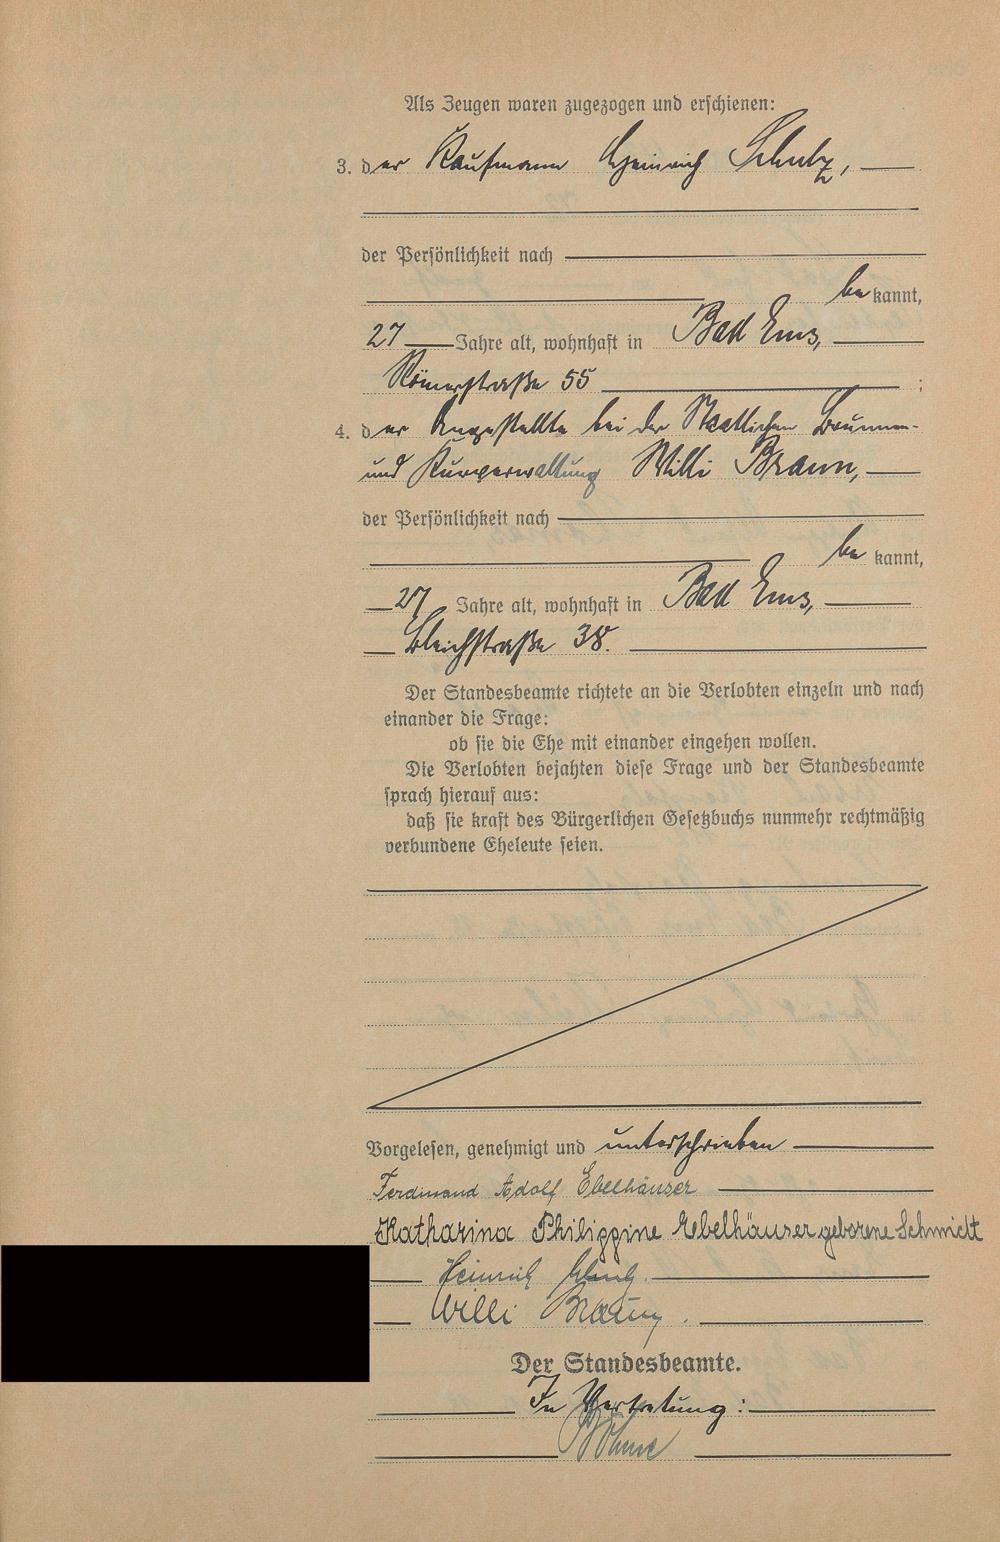 Als Zeugen waren zugezogen und erschienen:
3. der Kaufmann Heinrich Schulz,
der Persönlichkeit nach
be kannt,
27 Jahre alt, wohnhaft in Bad Ems,
Römerstraße 55 ;
4. der Angestellte bei der Staatlichen Brunnen-
und Kurverwaltung Willi Braun,
der Persönlichkeit nach
be kannt,
27 Jahre alt, wohnhaft in Bad Ems,
Bleichstraße 38.
Der Standesbeamte richtete an die Verlobten einzeln und nach
einander die Frage:
ob sie die Ehe mit einander eingehen wollen.
Die Verlobten bejahten diese Frage und der Standesbeamte
sprach hierauf aus:
daß sie kraft des Bürgerlichen Gesetzbuchs nunmehr rechtmäßig
verbundene Eheleute seien.
Vorgelesen, genehmigt und unterschrieben
Ferdinand Adolf Ebelhäuser
Katharina Philippine Ebelhäuser geborene Schmidt
Heinrich Schulz.
Willi Braun.
Der Standesbeamte.
In Vertretung: